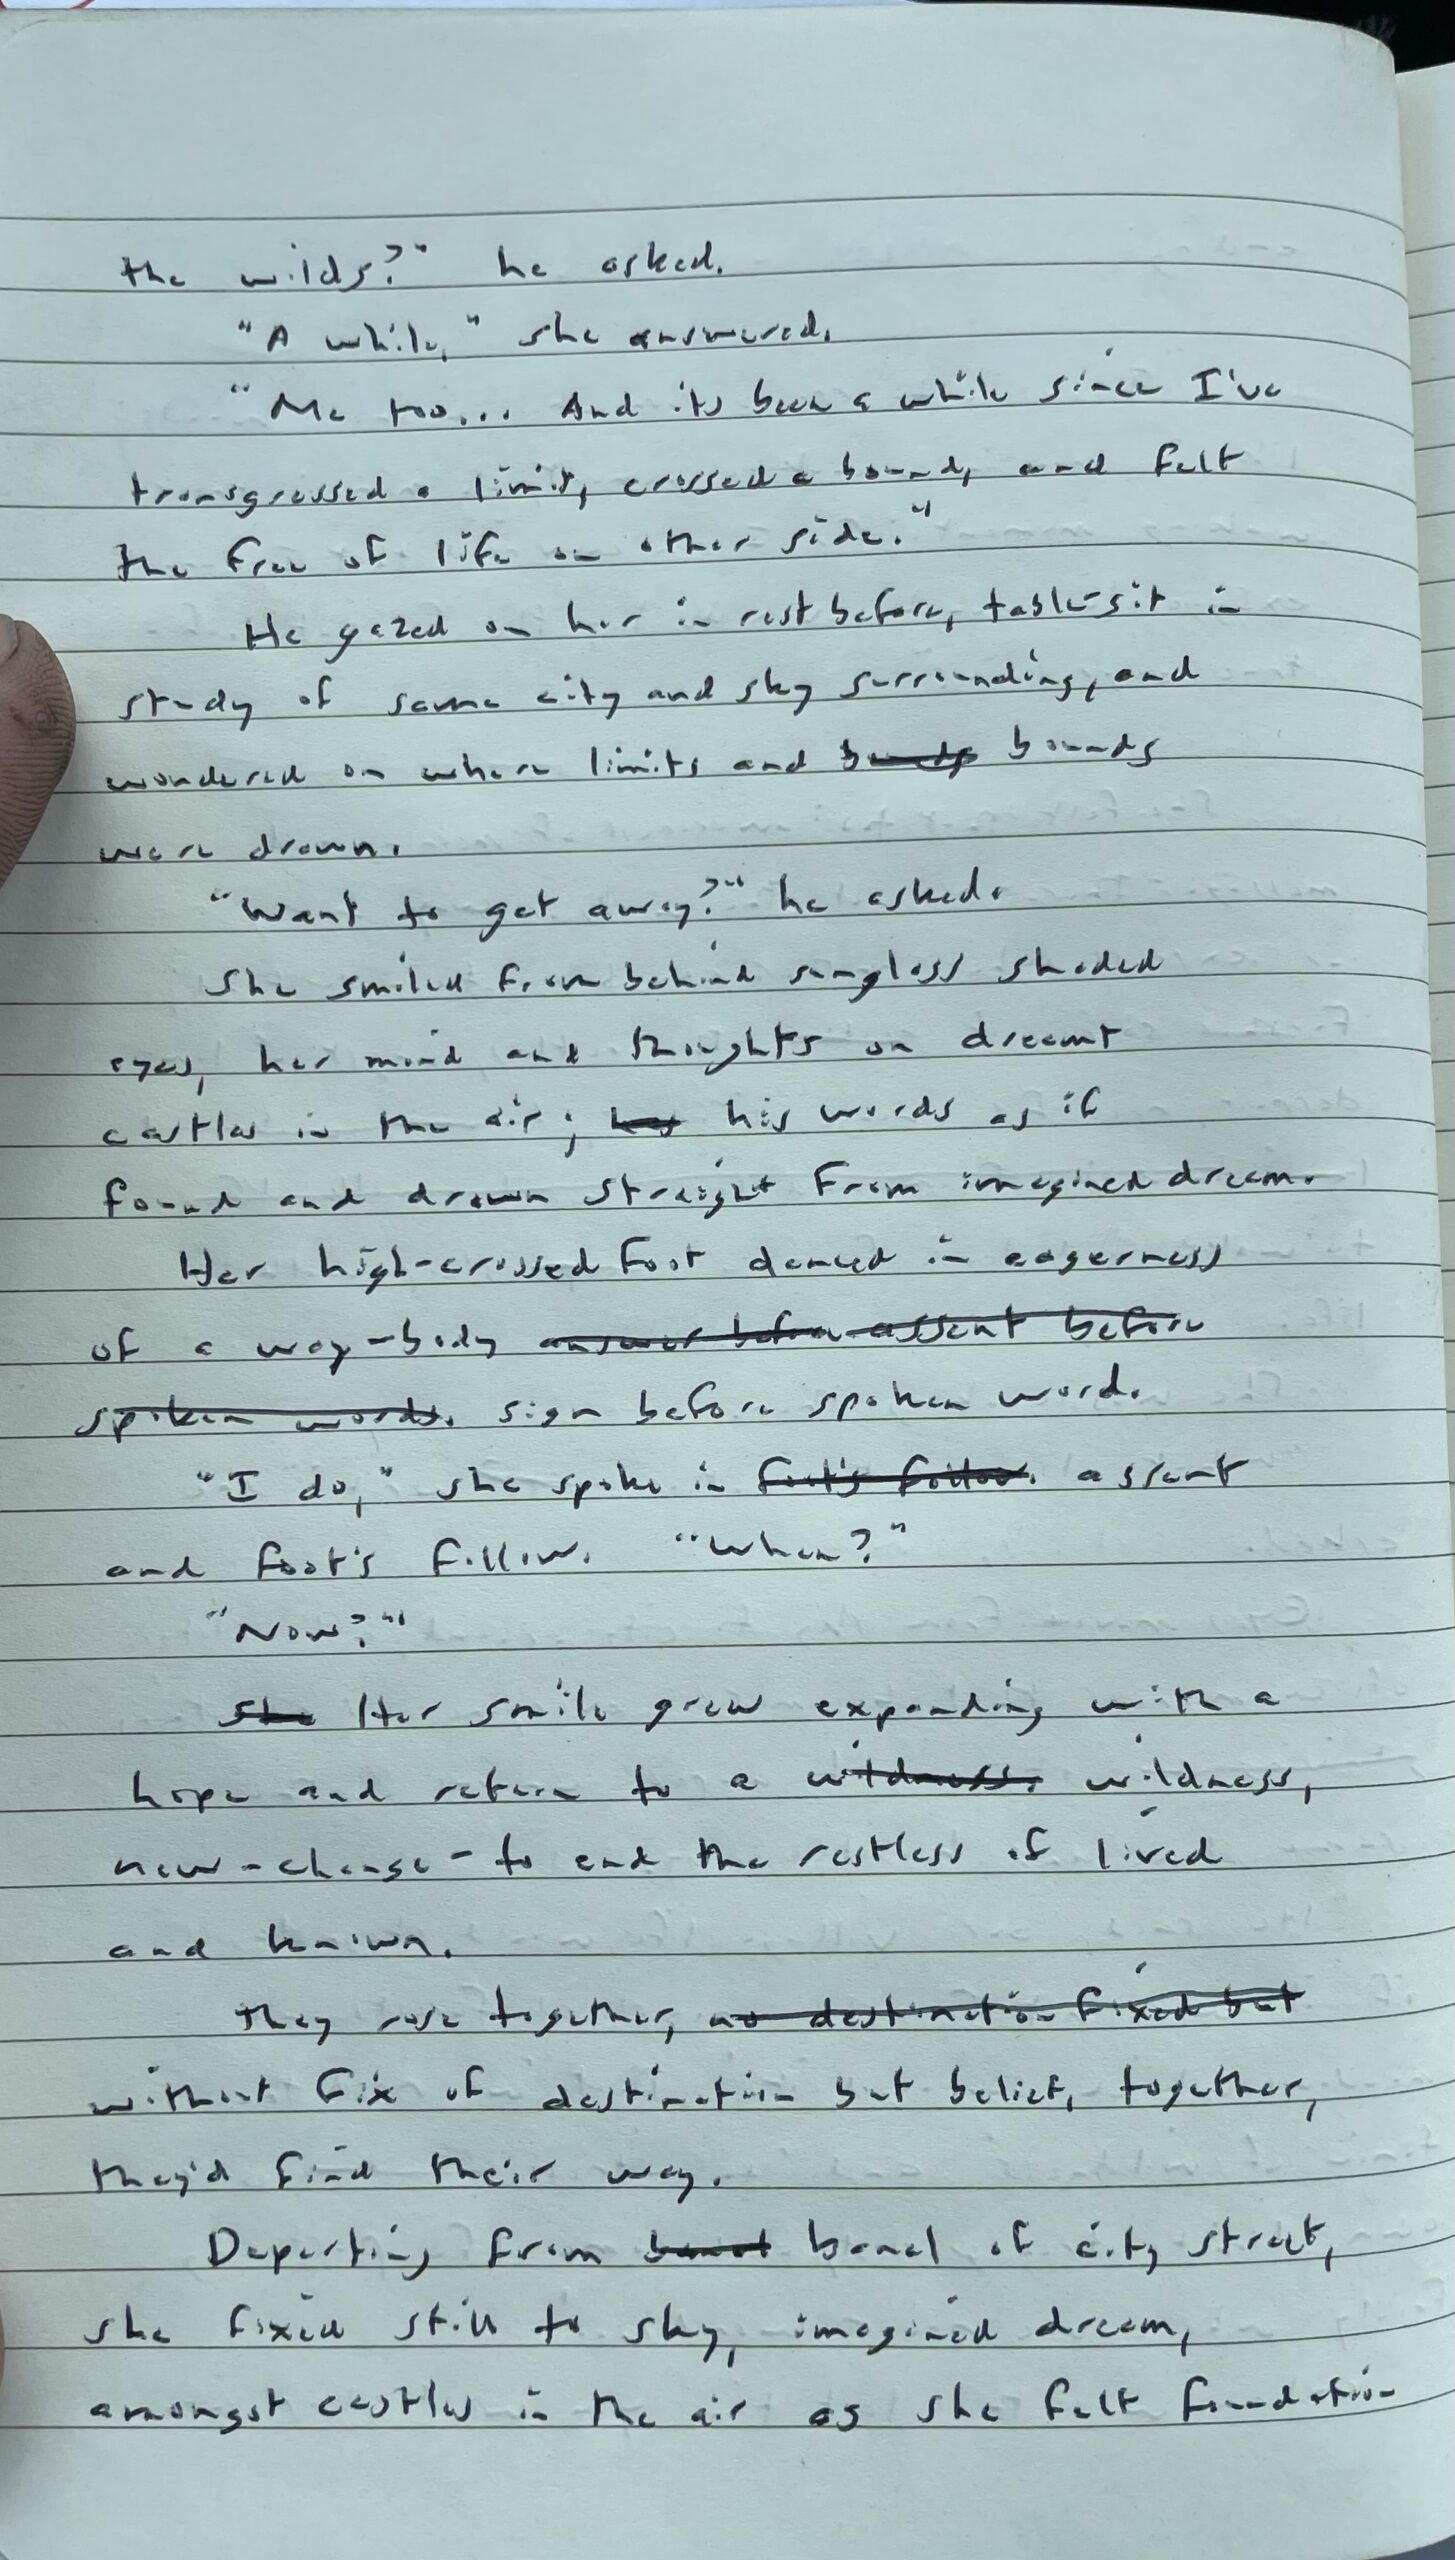 the wilds?" he asked.
"A while," she answered.
"Me too... And its been a while since I've
transgressed a limit, crossed a bound, and felt
the free of life on other side."
He gazed on her in rest before, table-sit in
study of same city and sky surrounding, and
wondered on where limits and bounds bounds
were drawn.
"Want to get away?" he asked.
She smiled from behind sunglass shaded
eyes, her mind and thoughts on dreamt
castles in the air; his words as if
found and drawn straight from imagined dream.
Her high-crossed foot danced in eagerness
of a way-body answer before assent before
spoken words. sign before spoken word.
"I do," she spoke in foot's follow. assent
and foot's follow. "When?"
"Now?"
She Her smile grew expanding with a
hope and return to a wildness. wildness,
new-change-to end the restless of lived
and known.
They rose together, no destination fixed but
without fix of destination but belief, together,
they'd find their way.
Departing from banal of city street,
she fixed still to sky, imagined dream,
amongst castles in the air as she felt foundation